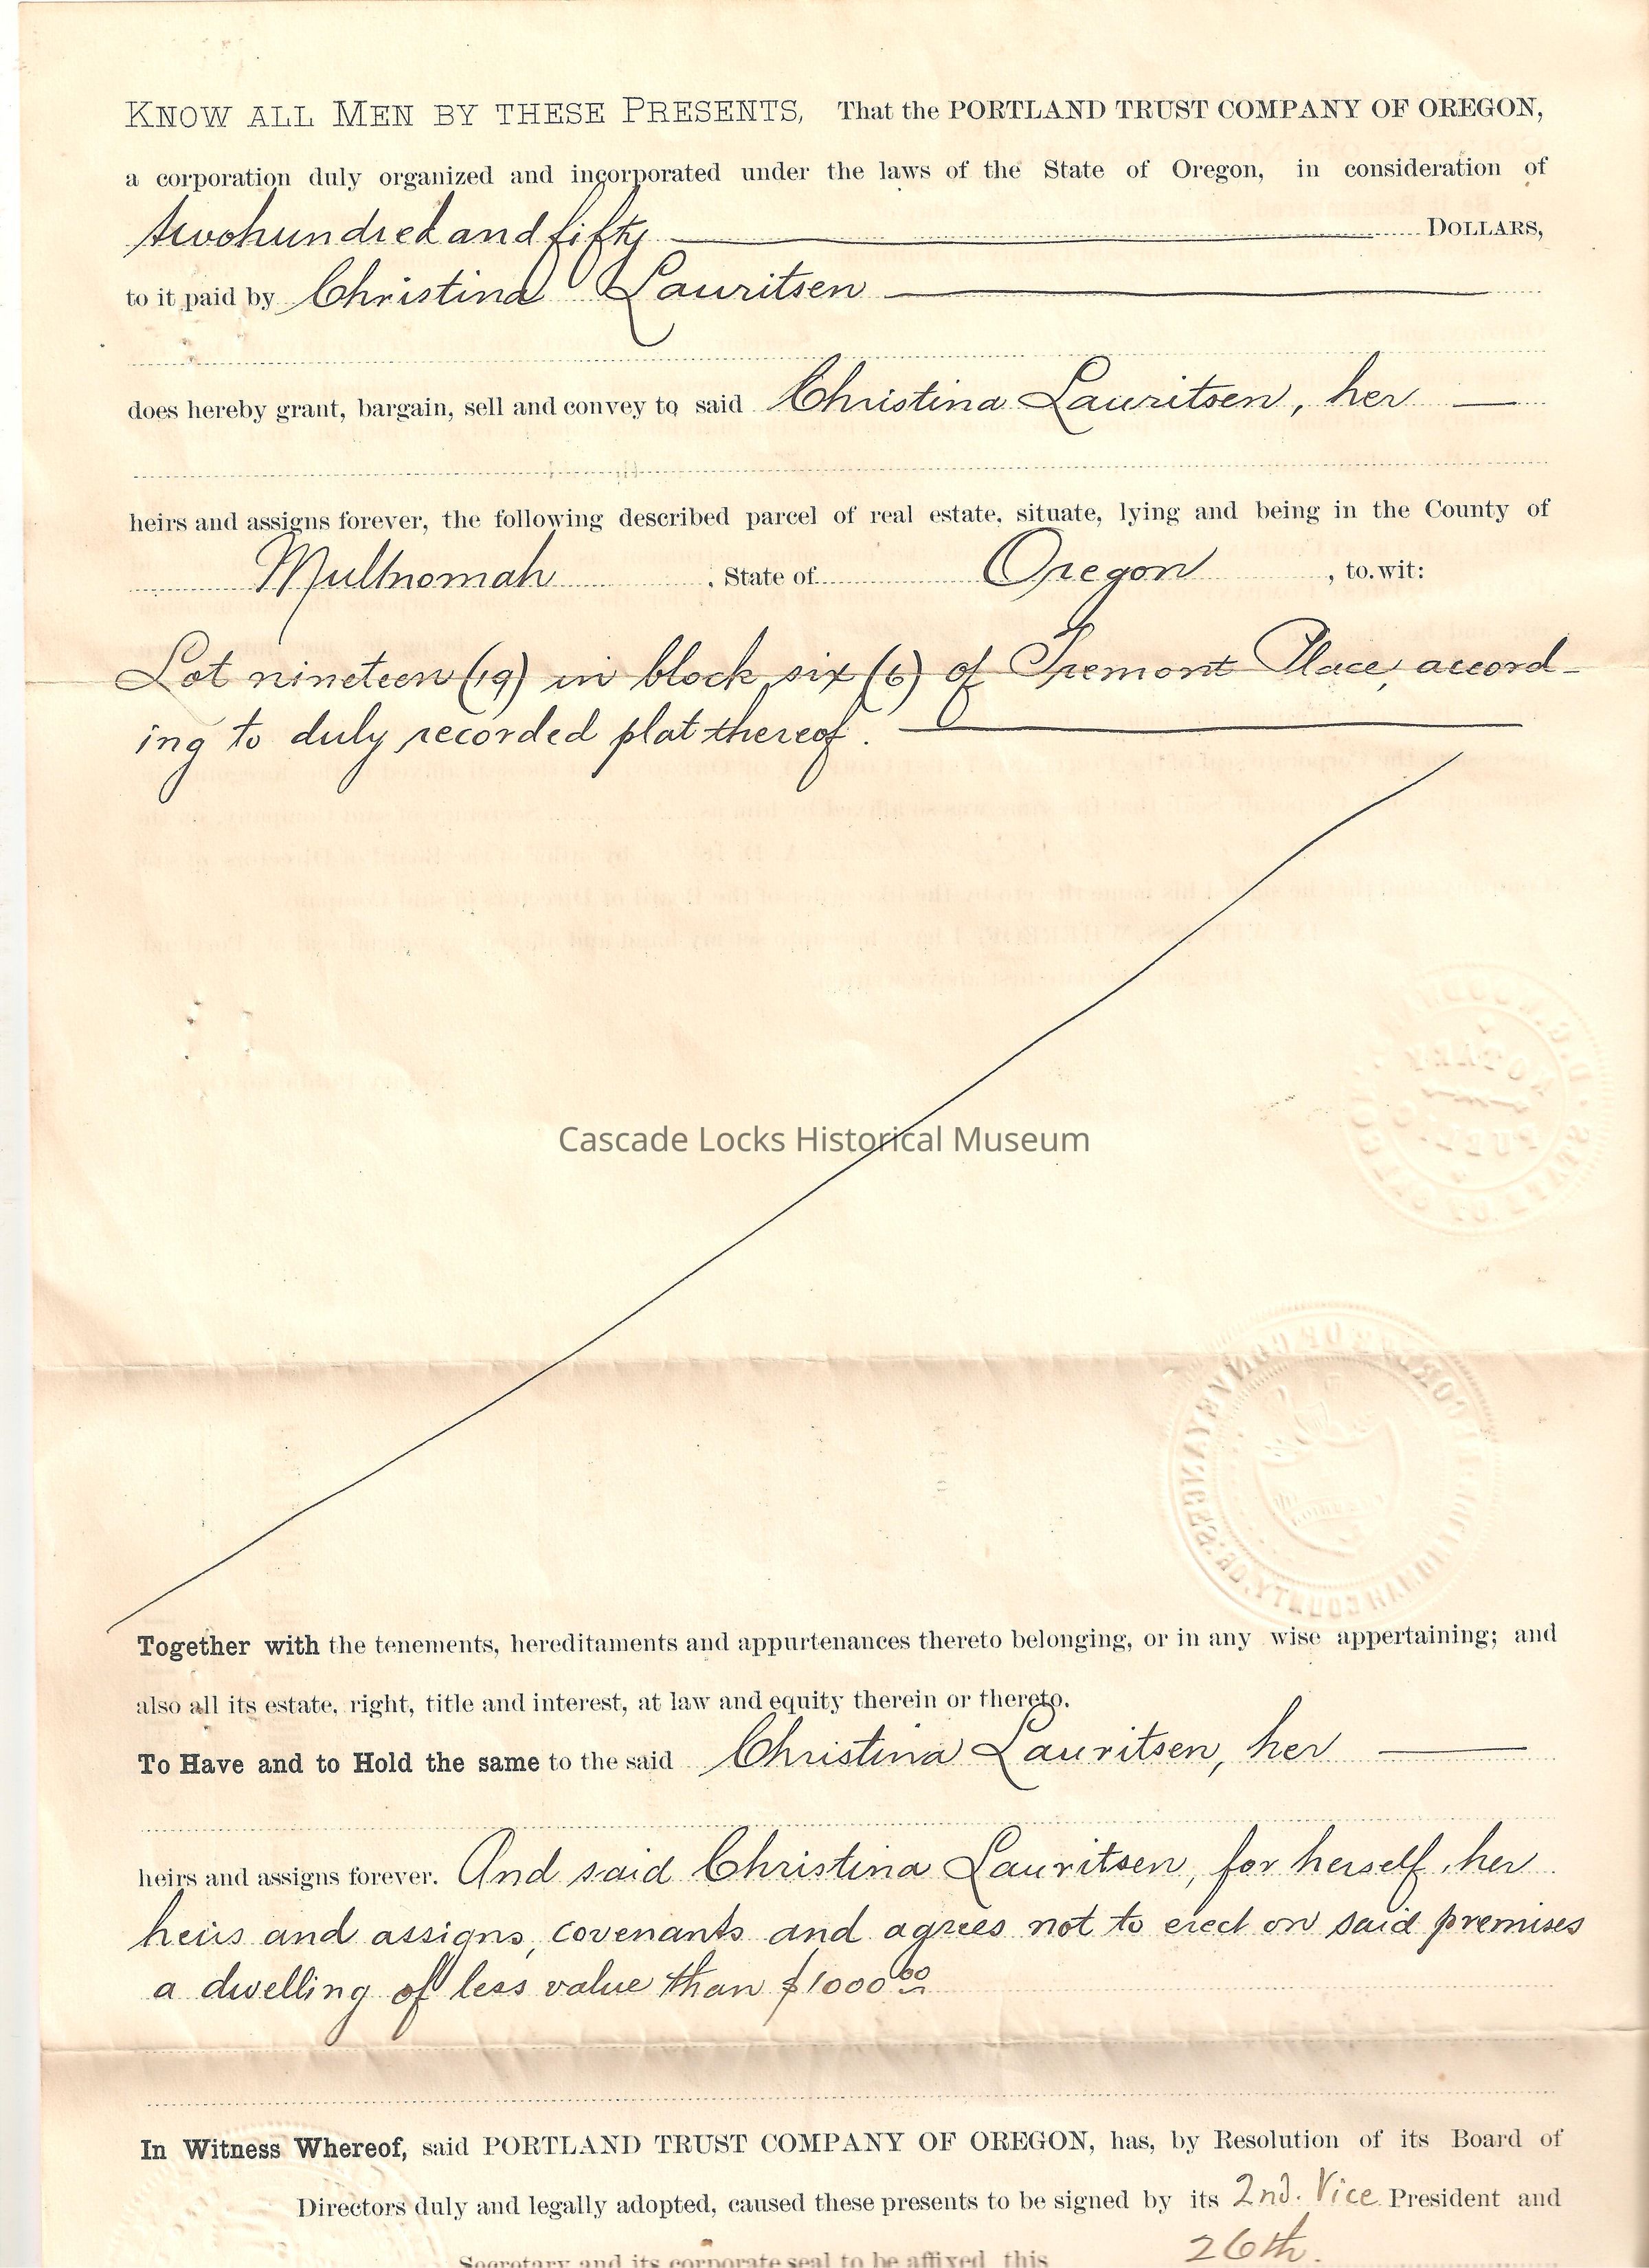 KNOW ALL MEN BY THESE PRESENTS, That the PORTLAND TRUST COMPANY OF OREGON,
a corporation duly organized and incorporated under the laws of the State of Oregon, in consideration of
twohundred and fifty DOLLARS,
to it paid by Christina Lauritsen
does hereby grant, bargain, sell and convey to said Christina Lauritsen, her
heirs and assigns forever, the following described parcel of real estate, situate, lying and being in the County of
Multnomah, State of Oregon, to wit:
Lot nineteen (19) in block six (6) of Tremont Place, accord-
ing to duly recorded plat thereof.
Cascade Locks Historical Museum
Together with the tenements, hereditaments and appurtenances thereto belonging, or in any wise appertaining; and
also all its estate, right, title and interest, at law and equity therein or thereto.
To Have and to Hold the same to the said Christina Lauritsen, her
heirs and assigns forever. And said Christina Lauritsen, for herself, her
heirs and assigns, covenants and agrees not to erect on said premises
a dwelling of less value than $1000.00
In Witness Whereof, said PORTLAND TRUST COMPANY OF OREGON, has, by Resolution of its Board of
Directors duly and legally adopted, caused these presents to be signed by its 2nd. Vice President and
Secretary and its corporate seal to be affixed this 26th.